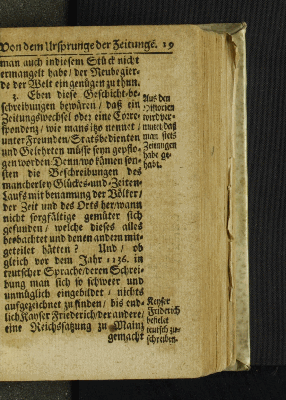 Von dem Ursprunge der Zeitunge. 19
man auch in diesem Stück nicht
ermangelt habe / der Neubegier-
de der Welt ein genügen zu thun.
3. Eben diese Geschicht-be-
schreibungen bewären / daß ein
Zeitungswechsel oder eine Corre-
spondenz / wie mans itzo nennet /
unter Freunden / Statsbedienten
und Gelehrten müsse seyn gepflo-
gen worden. Denn / wo kämen son-
sten die Beschreibungen des
mancherley Glücks- und Zeiten-
Laufs mit benamung der Völker /
der Zeit und des Orts her / wann
nicht sorgfältige gemüter sich
gefunden / welche dieses alles
beobachtet und denen andern mit-
geteilet hätten? Und / ob
gleich vor dem Jahr 1236. in
teutscher Sprache / deren Schrei-
bung man sich so schweer und
unmüglich eingebildet / nichts
aufgezeichnet zu finden / bis end-
lich Kayser Friederich / der andere /
eine Reichssatzung zu Mainz
gemacht
Aus den
Historien
wird ver-
mutet daß
man stets
Zeitungen
habt ge-
habt.
Keyser
Friderich
befielet
teutsch zu-
schreiben.